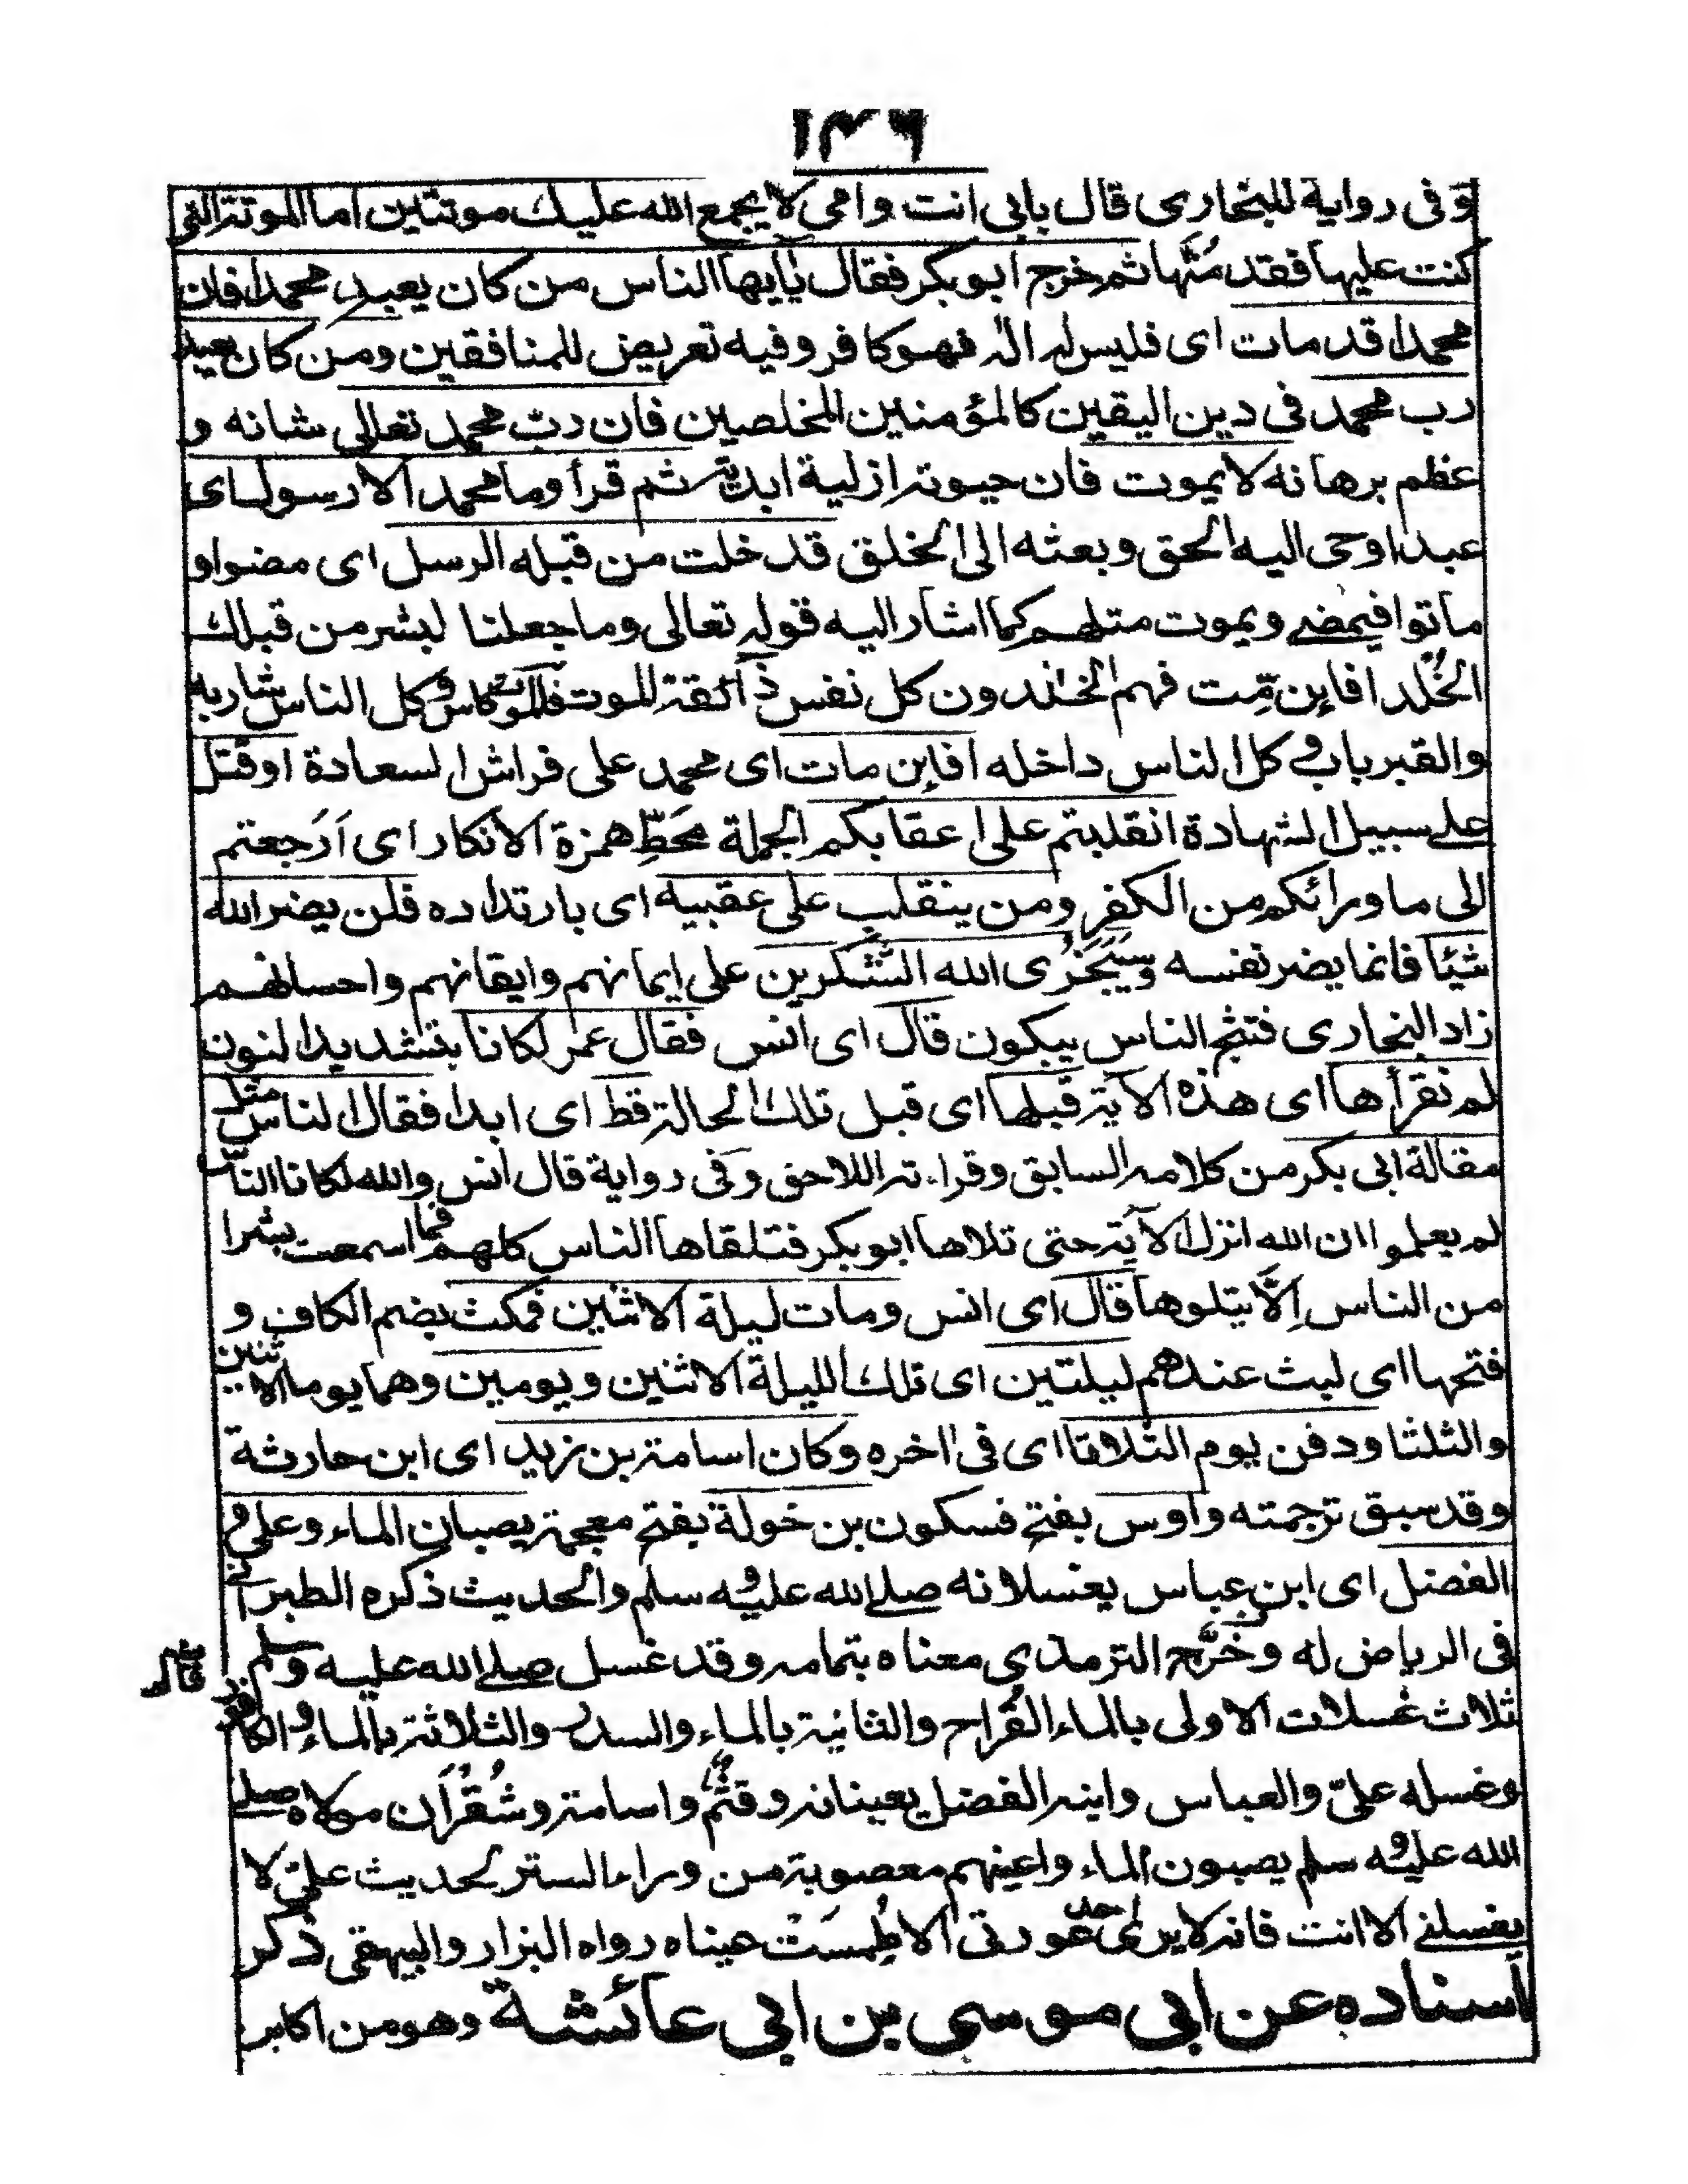 ١٤٦
وفى رواية للبخارى قال بابى انت وامى لا يجمع الله عليك موتتين اما الموتة التى
كنت عليها فقد مُتَّها ثم خرج ابو بكر فقال يٰايها الناس من كان يعبد محمدا فان
محمدا قد مات اى فليس له اله فهو كافر وفيه تعريض للمنافقين ومن كان يعبد
رب محمد فى دين اليقين كالمؤمنين المخلصين فان ربّ محمد تعالى شانه و
عظم برهانه لا يموت فان حيوته ازلية ابدية ثم قرأ وما محمد الا رسول اى
عبد اوحى اليه الحق وبعثه الى الخلق قد خلت من قبله الرسل اى مضوا و
ماتوا فيمضے ويموت مثلهم كما اشار اليه قوله تعالى وما جعلنا لبشر من قبلك
الخُلْد افاين مِّت فهم الخٰلدون كل نفس ذآئقة الموت فالموت كاس وكل الناس شاربه
والقبر باب وكل الناس داخله افاين مات اى محمد على فراش السعادة او قتل
علے سبيل الشهادة انقلبتم على اعقابكم الجملة مَحَطّ همزة الانكار اى اَرَجعتم
الى ما ورائكم من الكفر ومن ينقلب على عقبيه اى بارتداده فلن يضر الله
شيئا فانما يضر نفسه وَسَيَجْزِى الله الشٰكرين على ايمانهم وايقانهم واحسانهم
زاد البخارى فنشج الناس يبكون قال اى انس فقال عمر لكانا بتشديد النون
لم نقرأها اى هذه الاية قبلها اى قبل تلك الحالة قط اى ابدا فقال الناس مثل
مقالة ابى بكر من كلامه السابق وقراءته اللاحق وفى رواية قال انس والله لكانا الناس
لم يعلموا ان الله انزل الآية حتى تلاها ابو بكر فتلقاها الناس كلهم فما اسمعت بشرا
من الناس اِلَّا يتلوها قال اى انس ومات ليلة الاثنين فمكث بضم الكاف و
فتحها اى لبث عندهم ليلتين اى تلك الليلة الاثنين ويومين وهما يوما الاثنين
والثلثا ودفن يوم الثلاثا اى فى اخره وكان اسامة بن زيد اى ابن حارثة
وقد سبق ترجمته واوس بفتح فسكون بن خولة بفتح معجمة يصبان الماء وعلى و
الفضل اى ابن عباس يغسلانه صلے الله عليه وسلم والحديث ذكره الطبرانے
فى الرياض له وخَرَّج الترمذي معناه بتمامه وقد غسل صلے الله عليه وسلم
ثلاث غسلات الاولى بالماء القُراح والثانية بالماء والسدر والثلاثة بالماء والكافور
وغسله علىّ والعباس وابنه الفضل يعينانه وقُثَم واسامة وشُقْرَان مولاه صلے
الله عليه وسلم يصبون الماء واعينهم معصوبة من وراء الستر لحديث علىّ لا
يغسلنے الا انت فانه لا يرى احد عورتى الا طُمِسَتْ عيناه رواه البزار والبيهقى ذكر
اسناده عن ابى موسى بن ابى عائشة وهو من اكابر